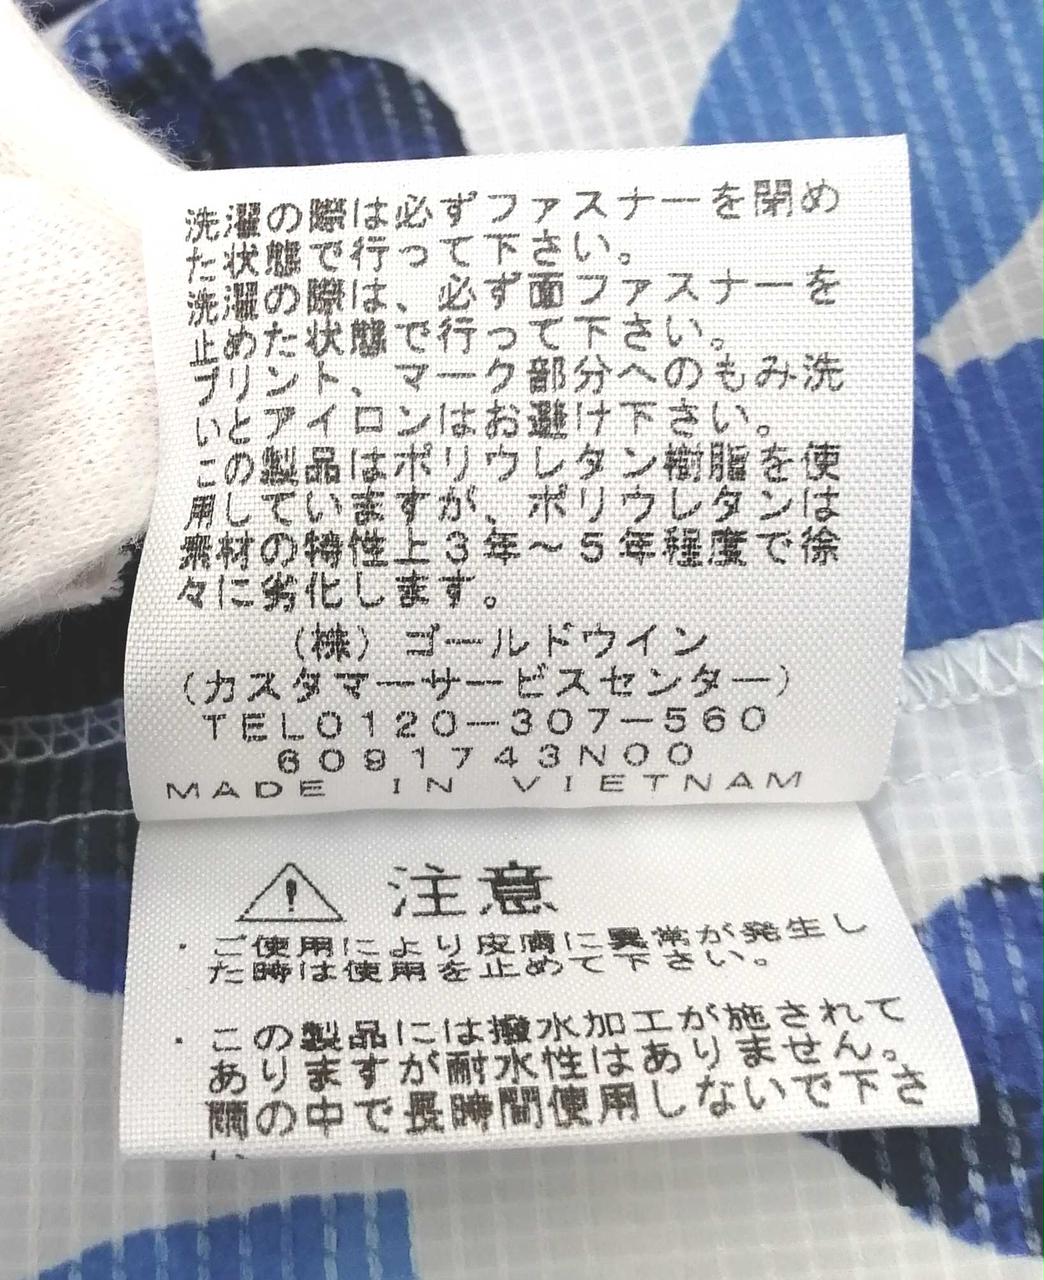 洗濯の際は必ずファスナーを閉め
た状態で行って下さい。
洗濯の際は、必ず面ファスナーを
止めた状態で行って下さい。
プリント、マーク部分へのもみ洗
いとアイロンはお避け下さい。
この製品はポリウレタン樹脂を使
用していますが、ポリウレタンは
素材の特性上3年~5年程度で徐
々に劣化します。
(株)ゴールドウイン
(カスタマーサービスセンター)
TEL0120-307-560
6091743N00
MADE IN VIETNAM
注意
・ご使用により皮膚に異常が発生し
た時は使用を止めて下さい。
・この製品には撥水加工が施されて
ありますが耐水性はありません。
雨の中で長時間使用しないで下さ